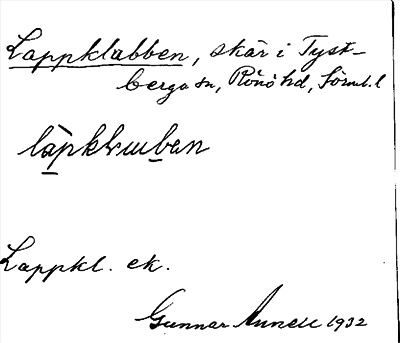 Lappklabben, skär i Tyst-
berga sn, Rönö hd, Sörml. l
Lappkl. ek.
Gunnar Annell 1932